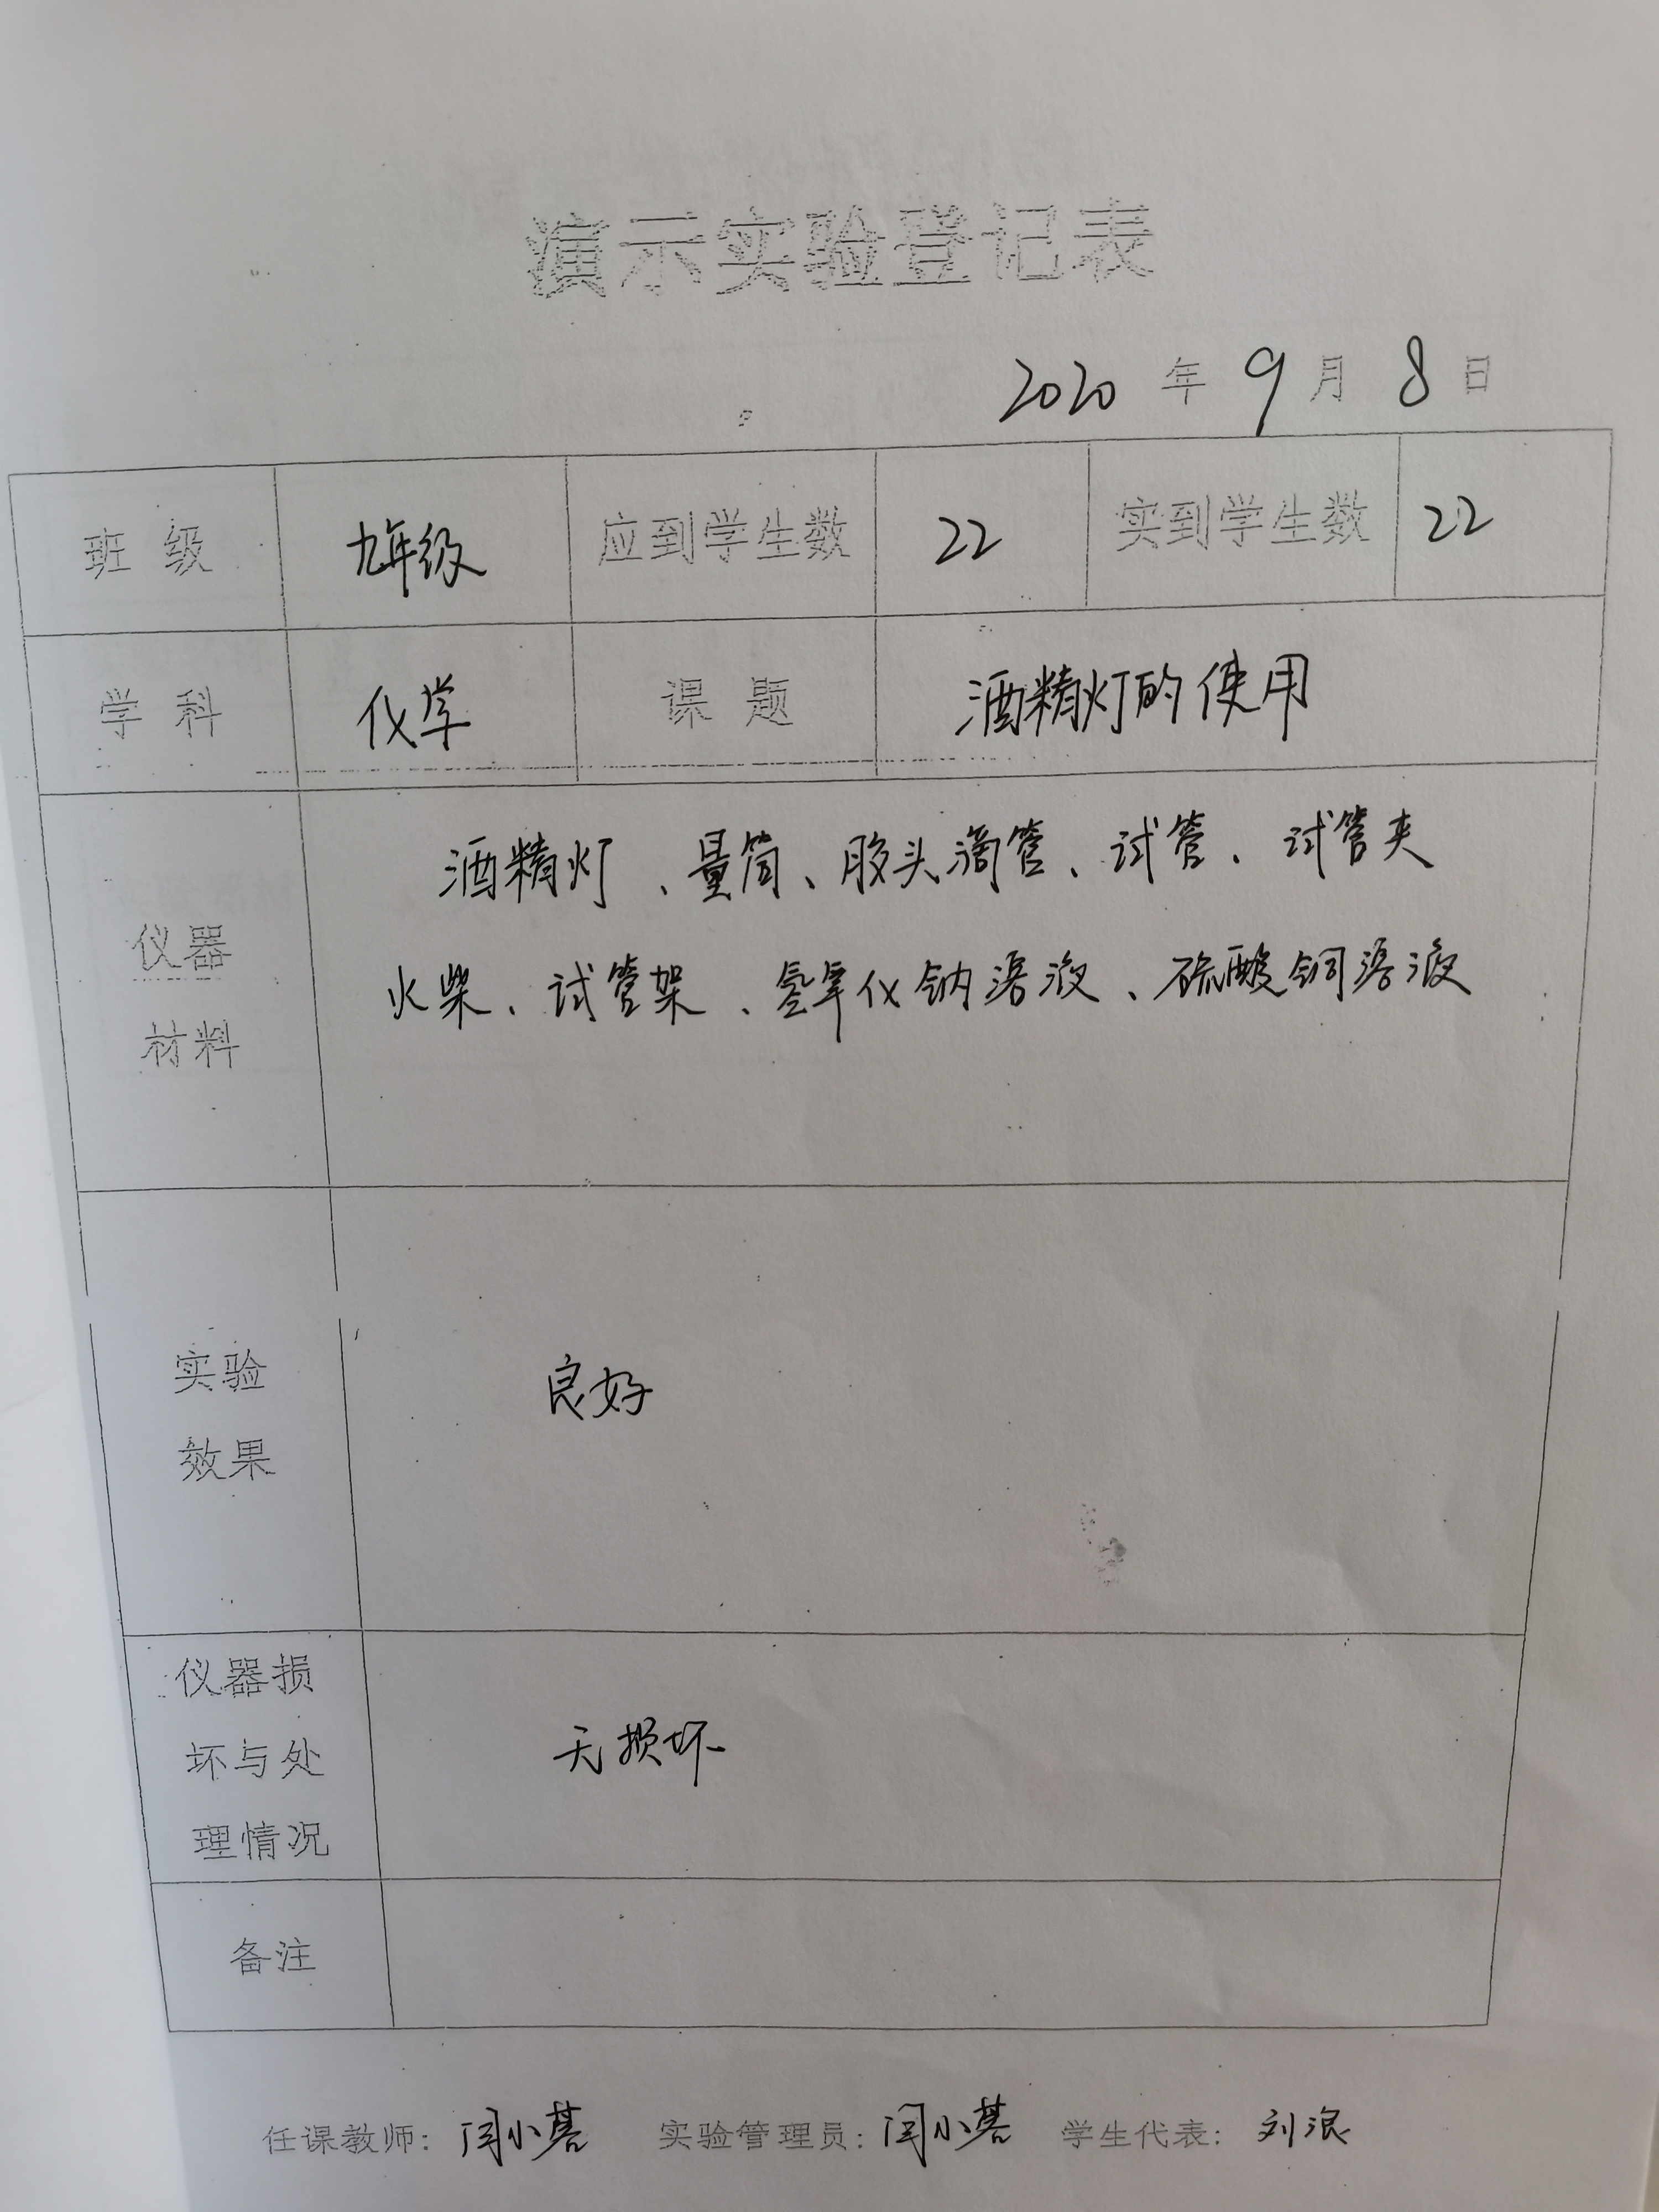 演示实验登记表
2020 年 9 月 8 日
班 级 九年级 应到学生数 22 实到学生数 22
学 科 化学 课 题 酒精灯的使用
酒精灯、量筒、胶头滴管、试管、试管夹
仪器
火柴、试管架、氢氧化钠溶液、硫酸铜溶液
材料
实验
良好
效果
仪器损
坏与处
无损坏
理情况
备注
任课教师: 闫小 实验管理员: 闫小 学生代表: 刘浪